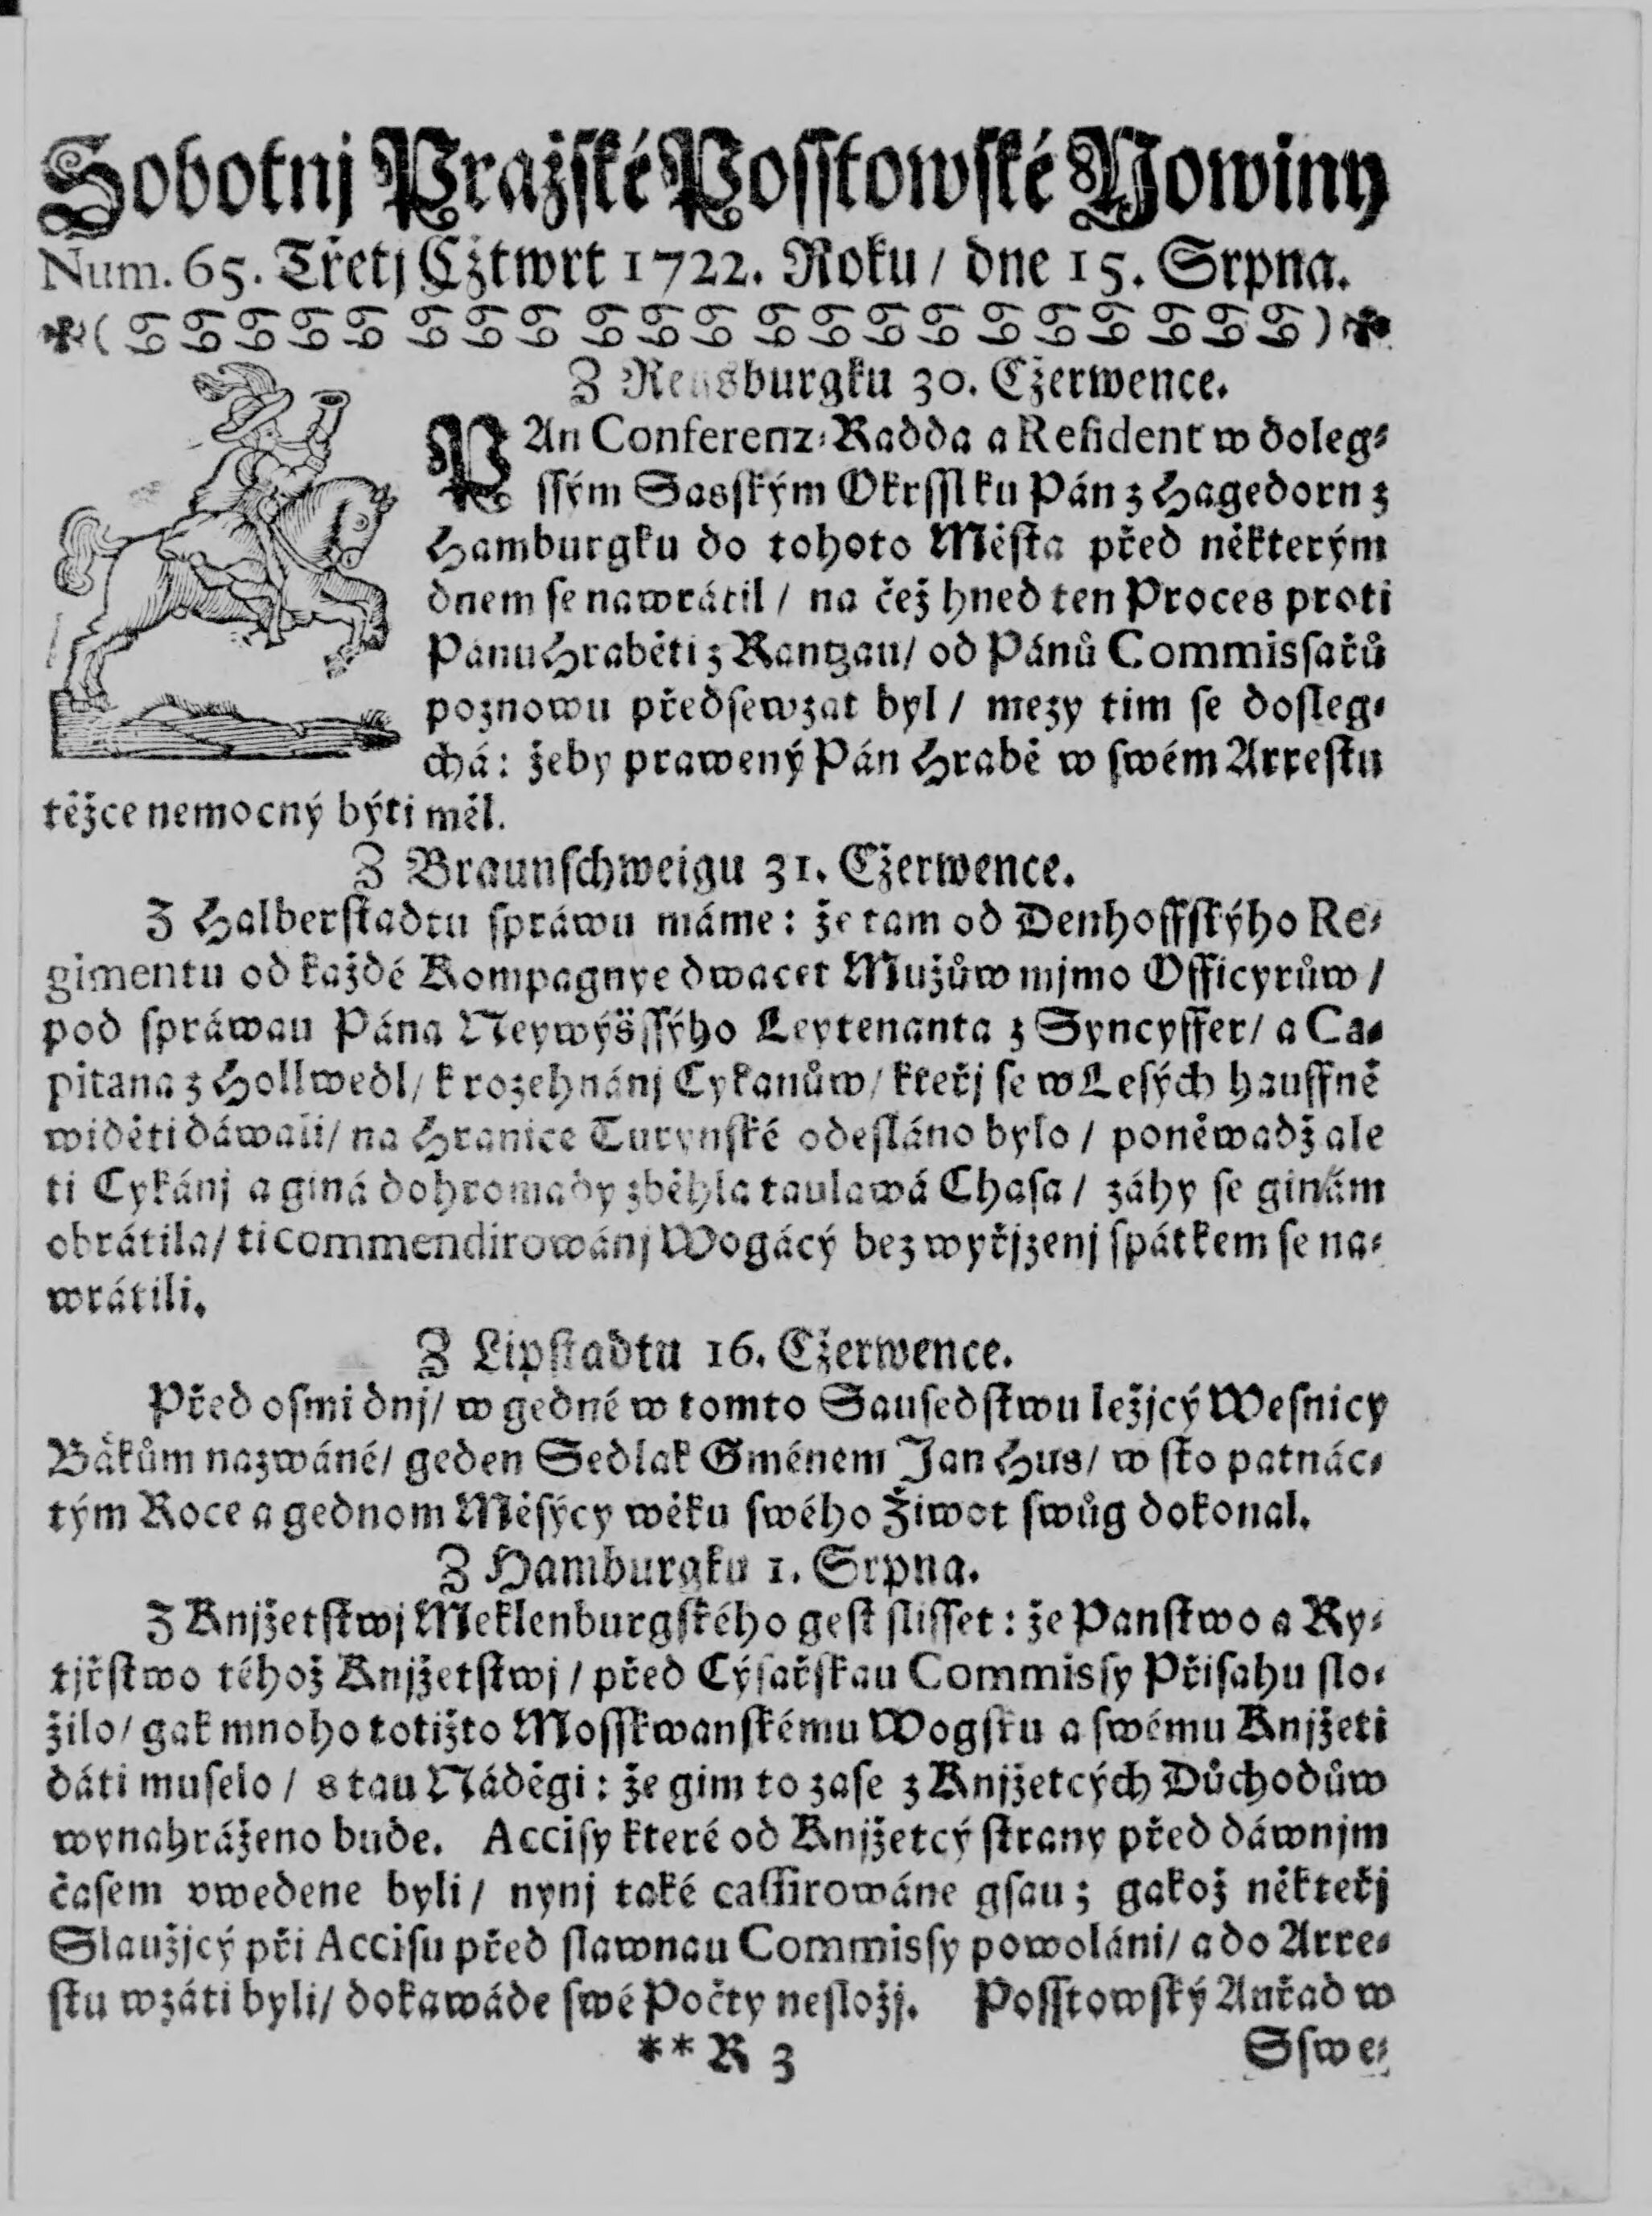 Sobotnj Pražſké Poſſtowſké Nowiny
Num. 65. Třetj Cžtwrt 1722. Roku / dne 15. Srpna.
Z Rensburgku 30. Cžerwence.
PAn Conferenz-Radda a Reſident w doleg-
ſſým Sasſkým Okrſſlku Pán z Hagedorn z
Hamburgku do tohoto Měſta před některým
dnem ſe nawrátil / na čež hned ten Proces proti
Pánu Hraběti z Rantzau / od Pánů Commisſařů
poznowu předſewzat byl / mezy tim ſe doſleg-
chá: žeby prawený Pán Hrabě w ſwém Arreſtu
těžce nemocný býti měl.
Z Braunſchweigu 31. Cžerwence.
Z Halberſtadtu ſpráwu máme: že tam od Denhoffſkýho Re-
gimentu od každé Kompagnye dwacet Mužůw mjmo Officyrůw /
pod ſpráwau Pána Neywýšſſýho Leytenanta z Syncyffer / a Ca-
pitana z Hollwedl / k rozehnánj Cykanůw / kteřj ſe w Leſých hauffně
widěti dáwali / na Hranice Turynſké odeſláno bylo / poněwadž ale
ti Cykánj a giná dohromady zběhla taulawá Chaſa / záhy ſe ginám
obrátila / ti commendirowánj Wogácý bez wyřjzenj ſpátkem ſe na-
wrátili.
Z Lipſtadtu 16. Cžerwence.
Před oſmi dnj / w gedné w tomto Sauſedſtwu ležjcý Weſnicy
Bäkům nazwáné / geden Sedlak Gménem Jan Hus / w ſto patnác-
tým Roce a gednom Měſýcy wěku ſwého Žiwot ſwůg dokonal.
Z Hamburgku 1. Srpna.
Z Knjžetſtwj Meklenburgſkého geſt ſliſſet: že Panſtwo a Ry-
tjřſtwo téhož Knjžetſtwj / před Cýſařſkau Commisſy Přiſahu ſlo-
žilo / gak mnoho totižto Moſſkwanſkému Wogſku a ſwému Knjžeti
dáti muſelo / s tau Náděgi: že gim to zaſe z Knjžetcých Důchodůw
wynahráženo bude. Acciſy které od Knjžetcý ſtrany před dáwnjm
čaſem vwedene byli / nynj také caſſirowáne gſau; gakož někteřj
Slaužjcý při Acciſu před ſlawnau Commisſy powoláni / a do Arre-
ſtu wzáti byli / dokawáde ſwé Počty neſložj. Poſſtowſký Auřad w
** R 3 Sſwe-